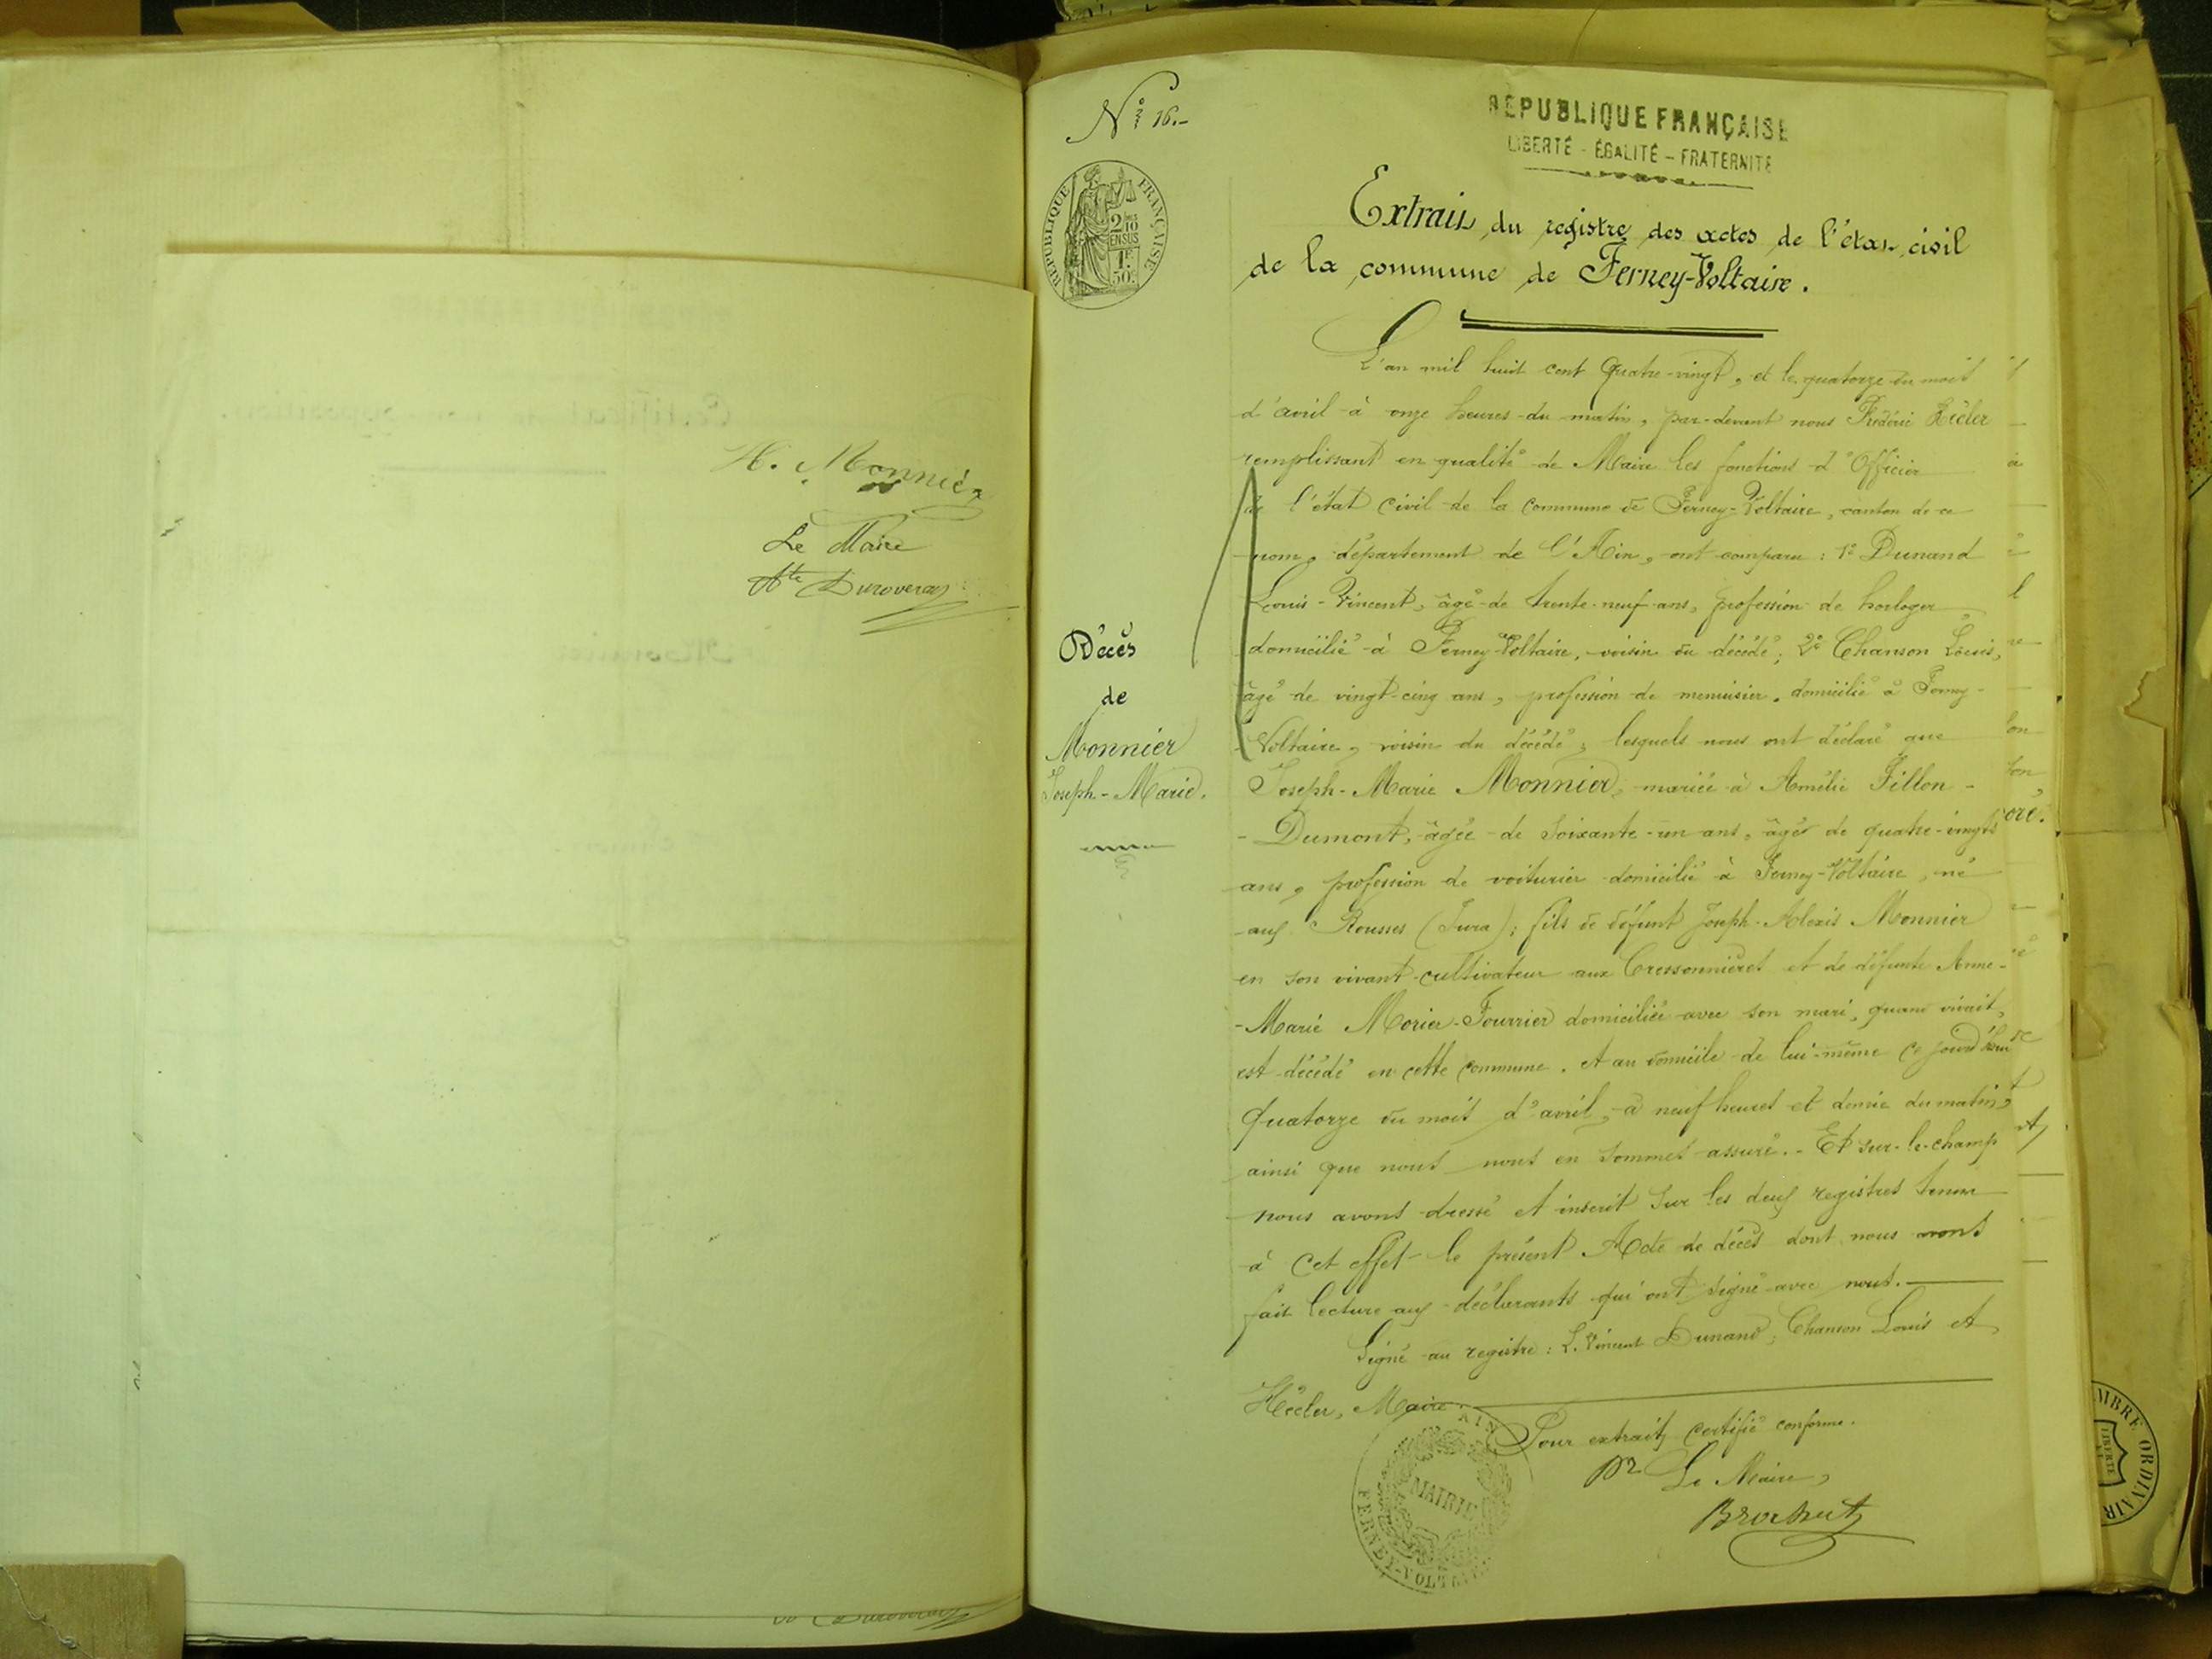 H. Monnier
Le Maire
Ate Duroveray
N° 16.-
RÉPUBLIQUE FRANÇAISE
LIBERTÉ - ÉGALITÉ - FRATERNITÉ
RÉPUBLIQUE FRANÇAISE
2/10
EN SUS
1F
50c
Extrait du registre des actes de l'état civil
de la commune de Ferney-Voltaire.
Décès
de
Monnier
Joseph-Marie.
L'an mil huit cent quatre-vingt, et le quatorze du mois
d'avril à onze heures du matin, par-devant nous Frédéric Hécler
remplissant en qualité de Maire les fonctions d'Officier
de l'état civil de la commune de Ferney-Voltaire, canton de ce
nom, département de l'Ain, ont comparu : 1° Dunand
Louis-Vincent, âgé de trente-neuf ans, profession de horloger
domicilié à Ferney-Voltaire, voisin du décédé; 2° Chanson Louis,
âgé de vingt-cinq ans, profession de menuisier, domicilié à Ferney-
Voltaire, voisin du décédé; lesquels nous ont déclaré que
Joseph-Marie Monnier, mariée à Amélie Fillon-
-Dumont, âgée de soixante-un ans, âgé de quatre-vingts
ans, profession de voiturier domicilié à Ferney-Voltaire, né
aux Rousses (Jura); fils de défunt Joseph-Alexis Monnier
en son vivant cultivateur aux Cressonnières et de défunte Anne-
-Marie Morier-Fourrier domiciliée avec son mari, quand vivait,
est décédé en cette commune, et au domicile de lui-même ce jourd'hui
quatorze du mois d'avril, à neuf heures et demie du matin,
ainsi que nous nous en sommes assuré. - Et sur-le-champ
nous avons dressé et inscrit sur les deux registres tenus
à cet effet le présent Acte de décès dont nous avons
fait lecture aux déclarants qui ont signé avec nous.
Signé au registre : L. Vincent Dunand, Chanson Louis et
Hécler, Maire.
Pour extrait certifié conforme.
Pr Le Maire,
Brochut
AIN
MAIRIE
FERNEY-VOLTAIRE